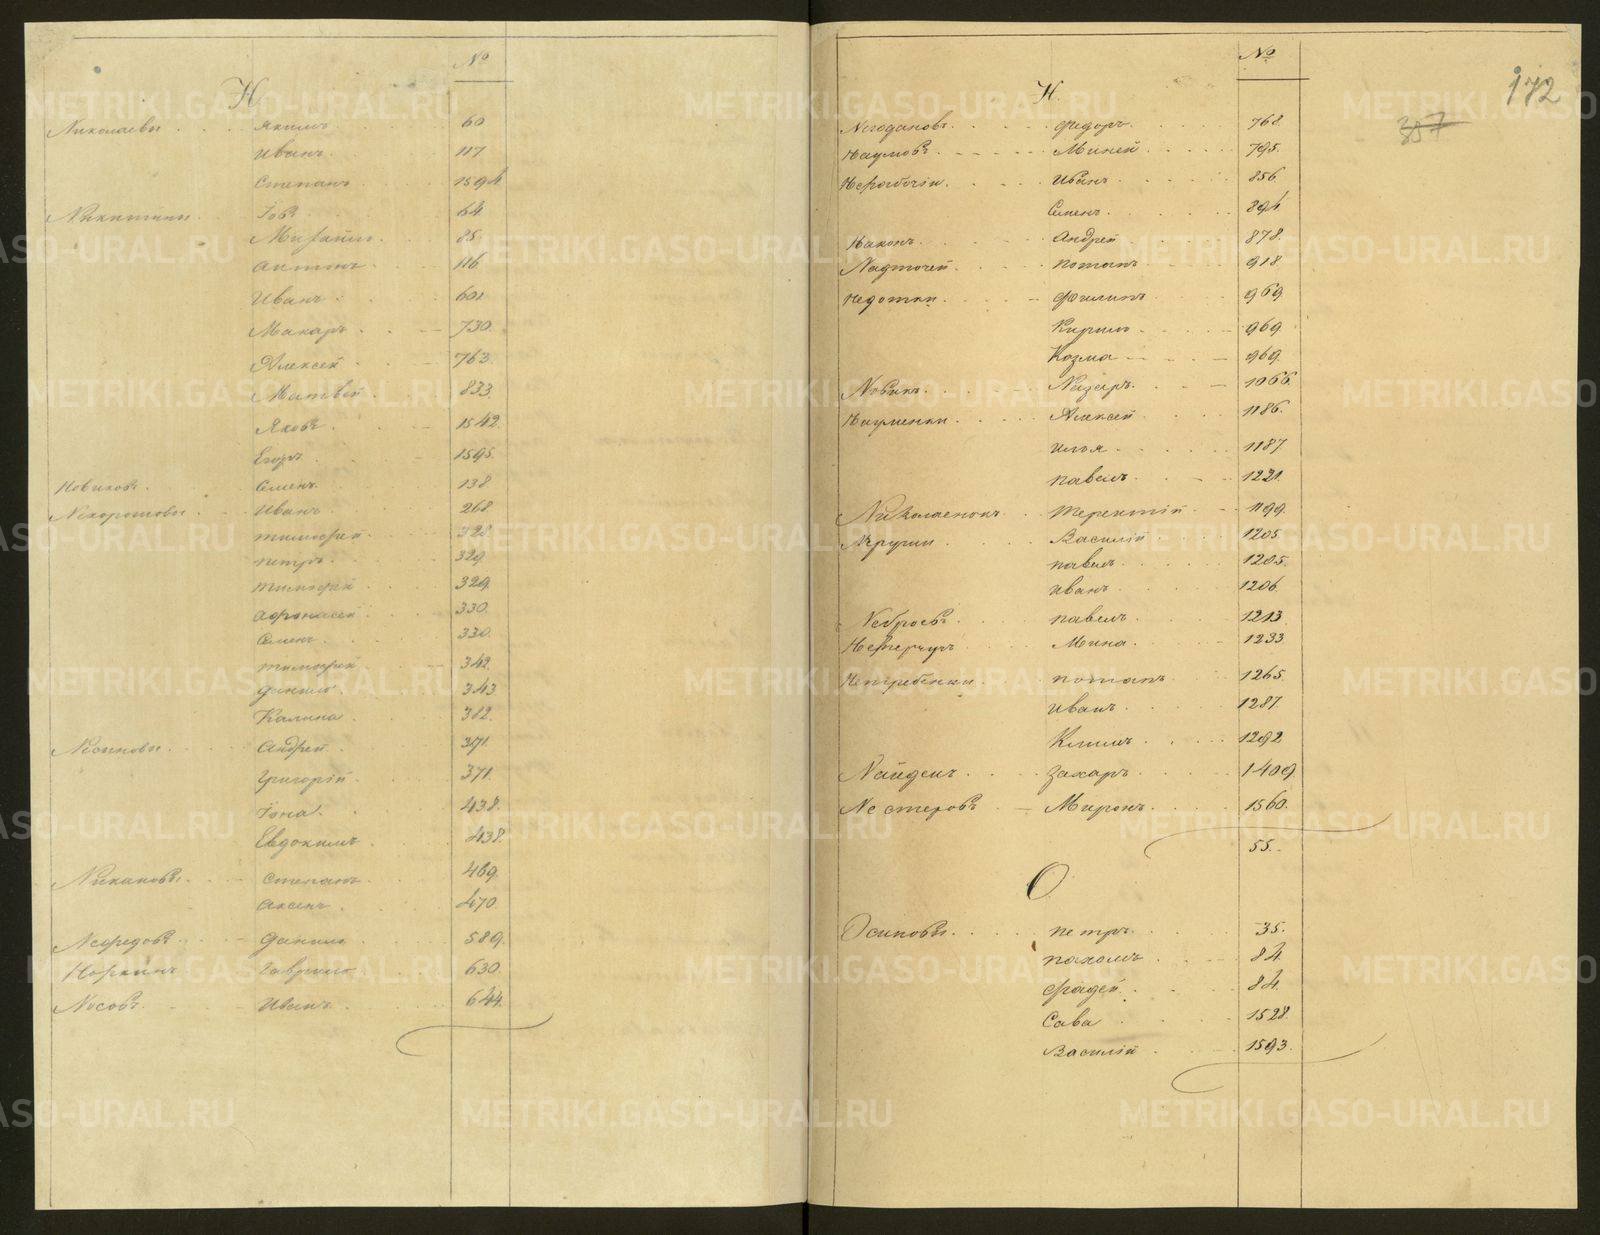 №
Н
Николаевы Якимъ 60
Иванъ 117
Степанъ 1594
Никитины Іовъ 64
Михаилъ 85
Антонъ 116
Иванъ 601
Макаръ 730.
Алексей 763.
Матвей 833.
Яковъ 1542.
Егоръ 1595.
Новиковъ Семенъ 138
Нехорошовы Иванъ 268
Тимофей 328.
Петръ 329.
Тимофей 329.
Афонасей 330.
Семенъ 330.
Тимофей 342.
Данило 343
Калина 382.
Андрей 371.
Григорій 371.
Іона 438.
Евдокимъ 438.
Степанъ 469.
Аксенъ 470.
Нефедовъ Данило 589.
Гаврило 630.
Носовъ Иванъ 644.
№
172
357
Н.
Федоръ 768.
Наумовъ Миней 795.
Иванъ 856
Семенъ 894.
Андрей 878.
Надточей Потапъ 918.
Филипъ 969
Кирилъ 969.
Козма 969.
Новикъ Назаръ 1066.
Науменки Алексей 1186.
Илья 1187
Павелъ 1221.
Николаенокъ Терентій 1199.
Василій 1205
Павелъ 1205.
Иванъ 1206.
Павелъ 1213
Мина 1233
Потапъ 1265.
Иванъ 1287.
Климъ 1292
Найденъ Захаръ 1409.
Нестеровъ Миронъ 1560.
55.
О
Осиповы Петръ 35.
Пахомъ 84.
Фадей 84.
Сава 1528.
Василій 1593.
METRIKI.GASO-URAL.RU